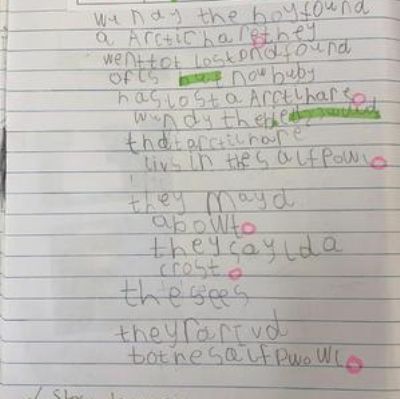 wun day the boy found
a Arctic hare. they
went tot Lost and found
ofis but now buby
has lost a Arctihare.
wun dy the
thatarctichare
livs in the salfpowl.
they mayd
a bowt.
they sayld a
crost.
the sees
they rarivd
to the salfpwowl.